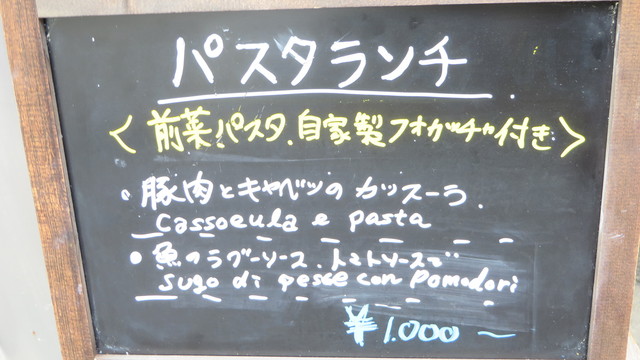 パスタランチ
<前菜パスタ.自家製フォカッチャ付き>
豚肉とキャベツのカッスーラ.
Cassoeula e pasta
魚のラグーソース.トマトソースで
Sugo di pesce con Pomodori
¥1.000~